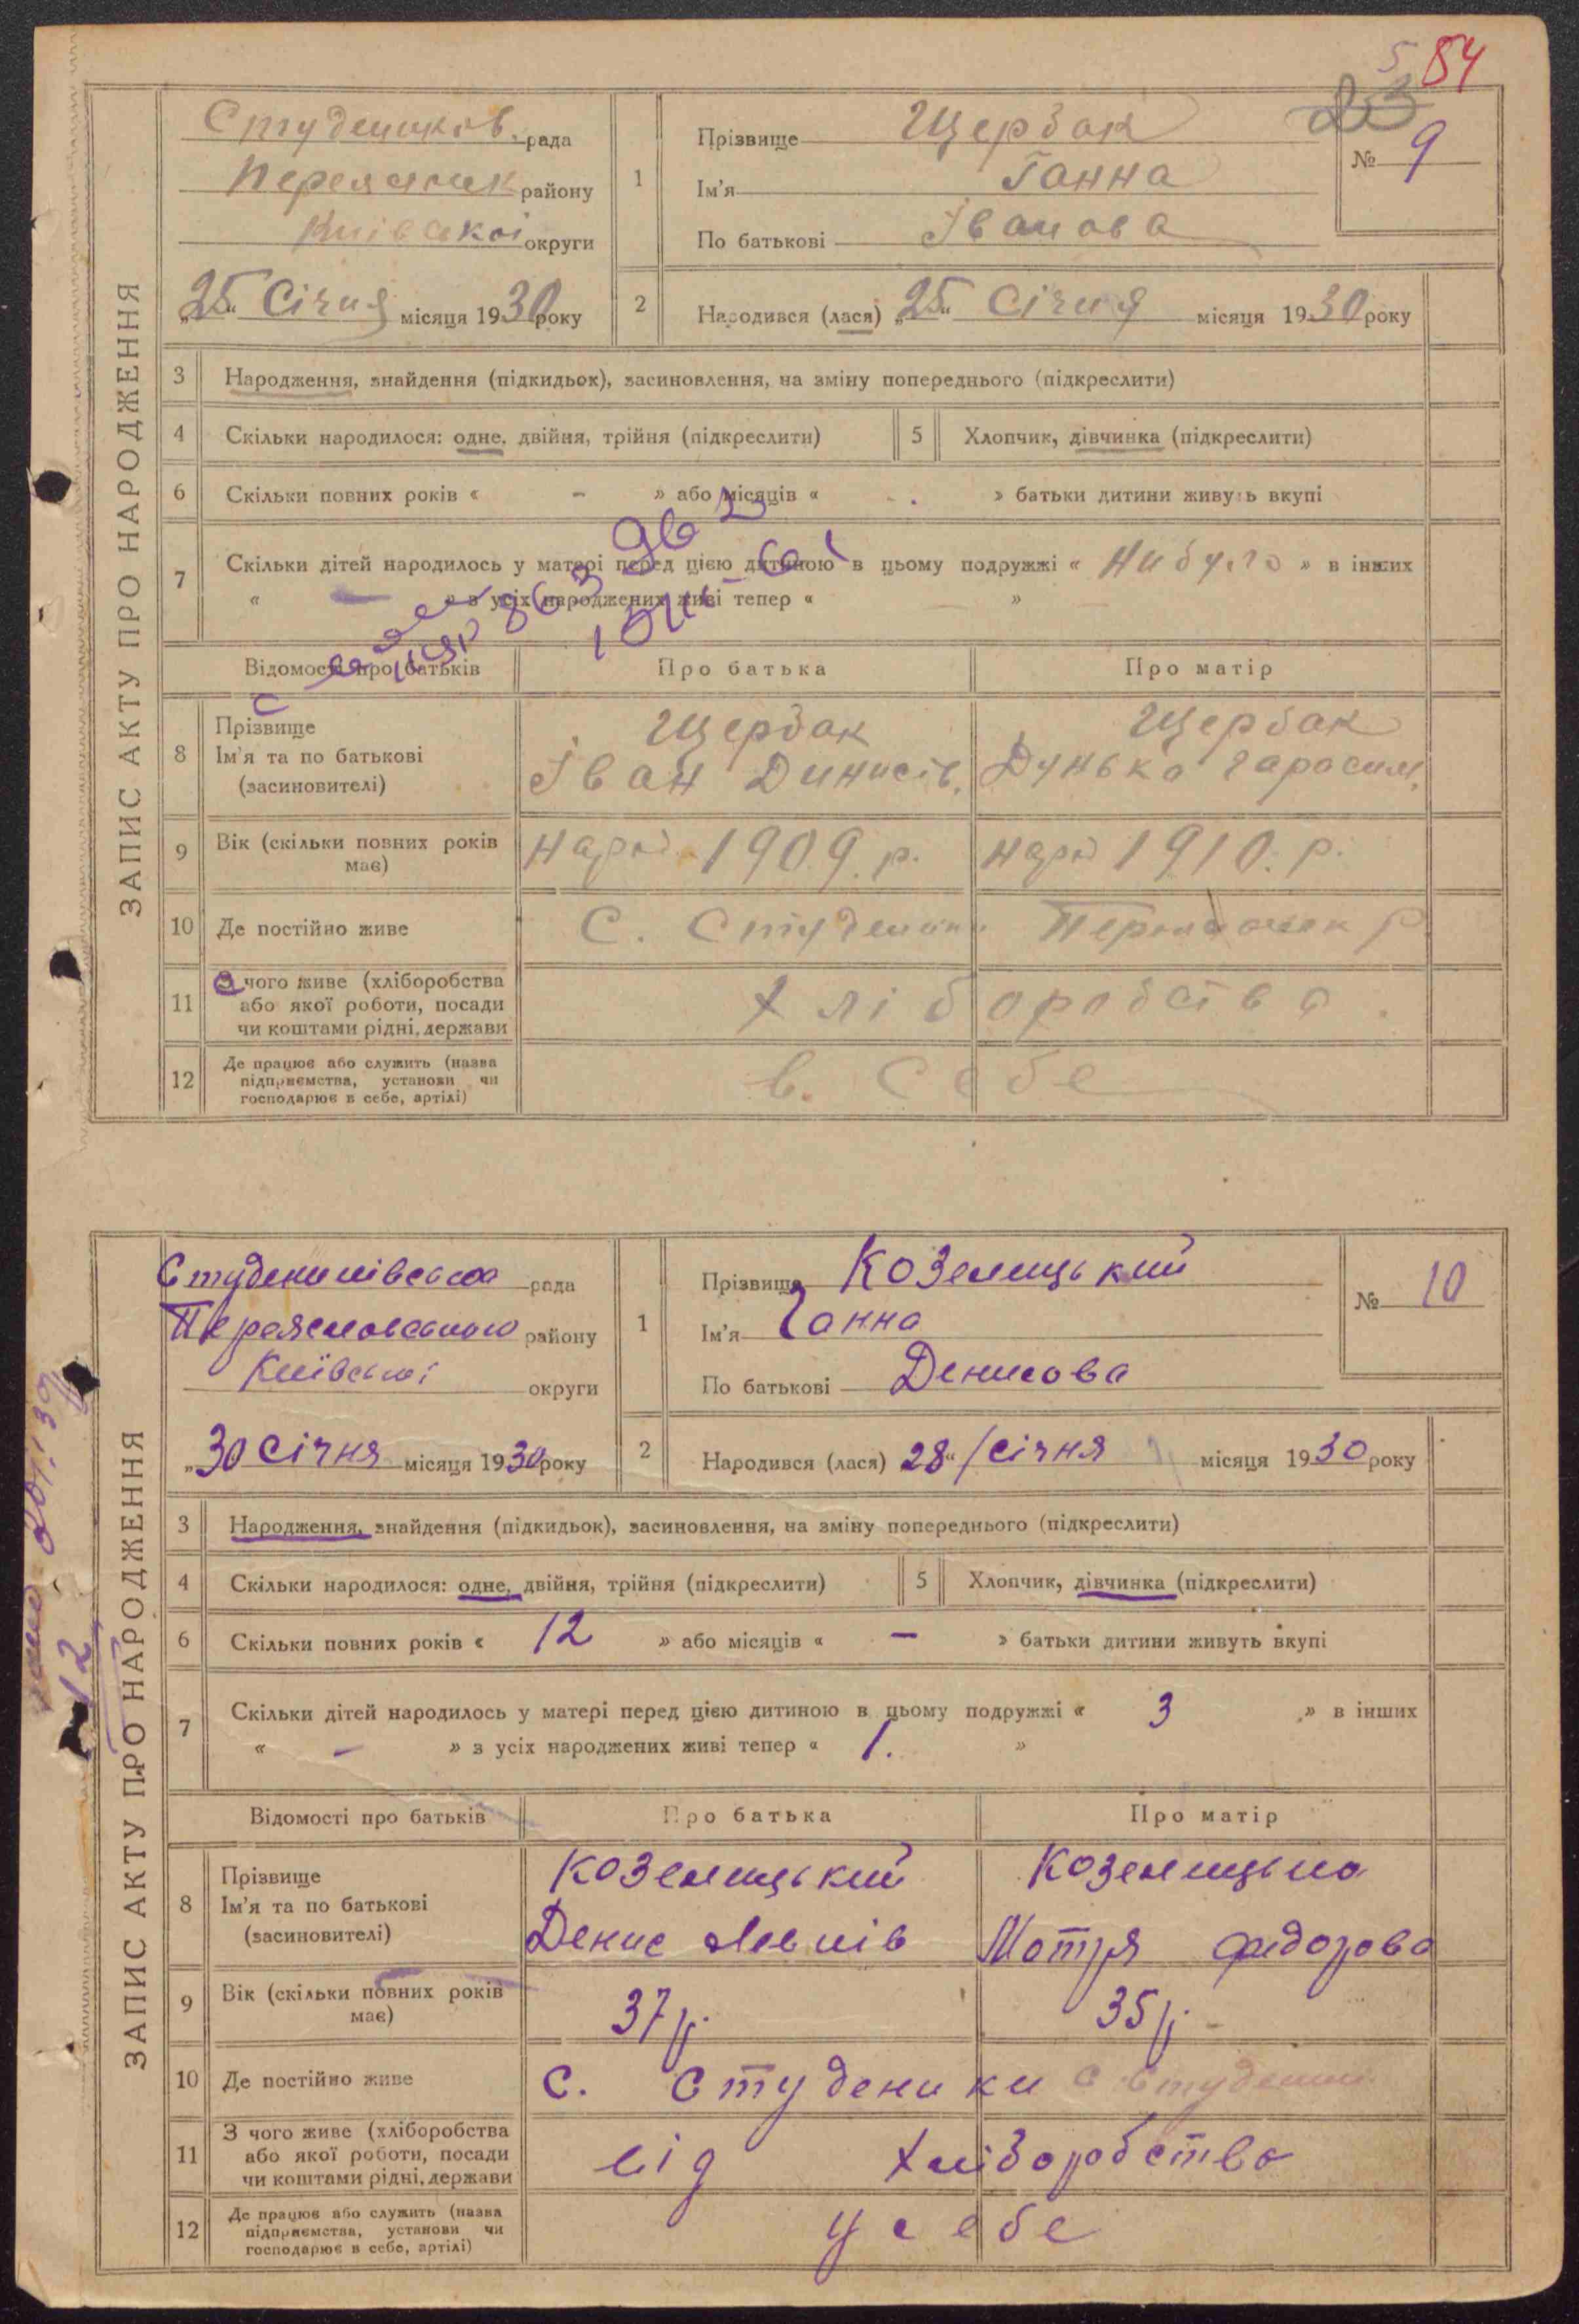 54
ЗАПИС АКТУ ПРО НАРОДЖЕННЯ
Студеников. рада
району
Київської округи
„25“ Січня місяця 1930 року
1
Прізвище Щербак
Ім'я Ганна
По батькові Іванова
№ 9
2
Народився (лася) „25“ Січня місяця 1930 року
3 Народження, знайдення (підкидьок), засиновлення, на зміну попереднього (підкреслити)
4 Скільки народилося: одне, двійня, трійня (підкреслити) 5 Хлопчик, дівчинка (підкреслити)
6 Скільки повних років « - » або місяців « . » батьки дитини живуть вкупі
7 Скільки дітей народилось у матері перед цією дитиною в цьому подружжі « Нибуло » в інших
« — » з усіх народжених живі тепер « »
Відомості про батьків Про батька Про матір
8 Прізвище
Ім'я та по батькові
(засиновителі)
Щербак
Іван Динисів.
Щербак
Дунька Гарасим.
9 Вік (скільки повних років має)
нар. 1909. р.
нар. 1910. р.
10 Де постійно живе
С. Студеник.
11 З чого живе (хліборобства
або якої роботи, посади
чи коштами рідні, держави
Хліборобства.
12 Де працює або служить (назва
підприємства, установи чи
господарює в себе, артілі)
в. Себе
ЗАПИС АКТУ ПРО НАРОДЖЕННЯ
Студениківська рада
Переяславського району
Київської округи
„30 Січня місяця 1930 року
1
Прізвище Козелицький
Ім'я Ганна
По батькові Денисова
№ 10
2
Народився (лася) 28“ Січня місяця 1930 року
3 Народження, знайдення (підкидьок), засиновлення, на зміну попереднього (підкреслити)
4 Скільки народилося: одне, двійня, трійня (підкреслити) 5 Хлопчик, дівчинка (підкреслити)
6 Скільки повних років « 12 » або місяців « — » батьки дитини живуть вкупі
7 Скільки дітей народилось у матері перед цією дитиною в цьому подружжі « 3 » в інших
« — » з усіх народжених живі тепер « 1. »
Відомості про батьків Про батька Про матір
8 Прізвище
Ім'я та по батькові
(засиновителі)
Козелицький
Денис
Козелицька
Мотря Федорова
9 Вік (скільки повних років має)
37 р.
35 р.
10 Де постійно живе
с. Студеники
11 З чого живе (хліборобства
або якої роботи, посади
чи коштами рідні, держави
від хліборобства
12 Де працює або служить (назва
підприємства, установи чи
господарює в себе, артілі)
у себе